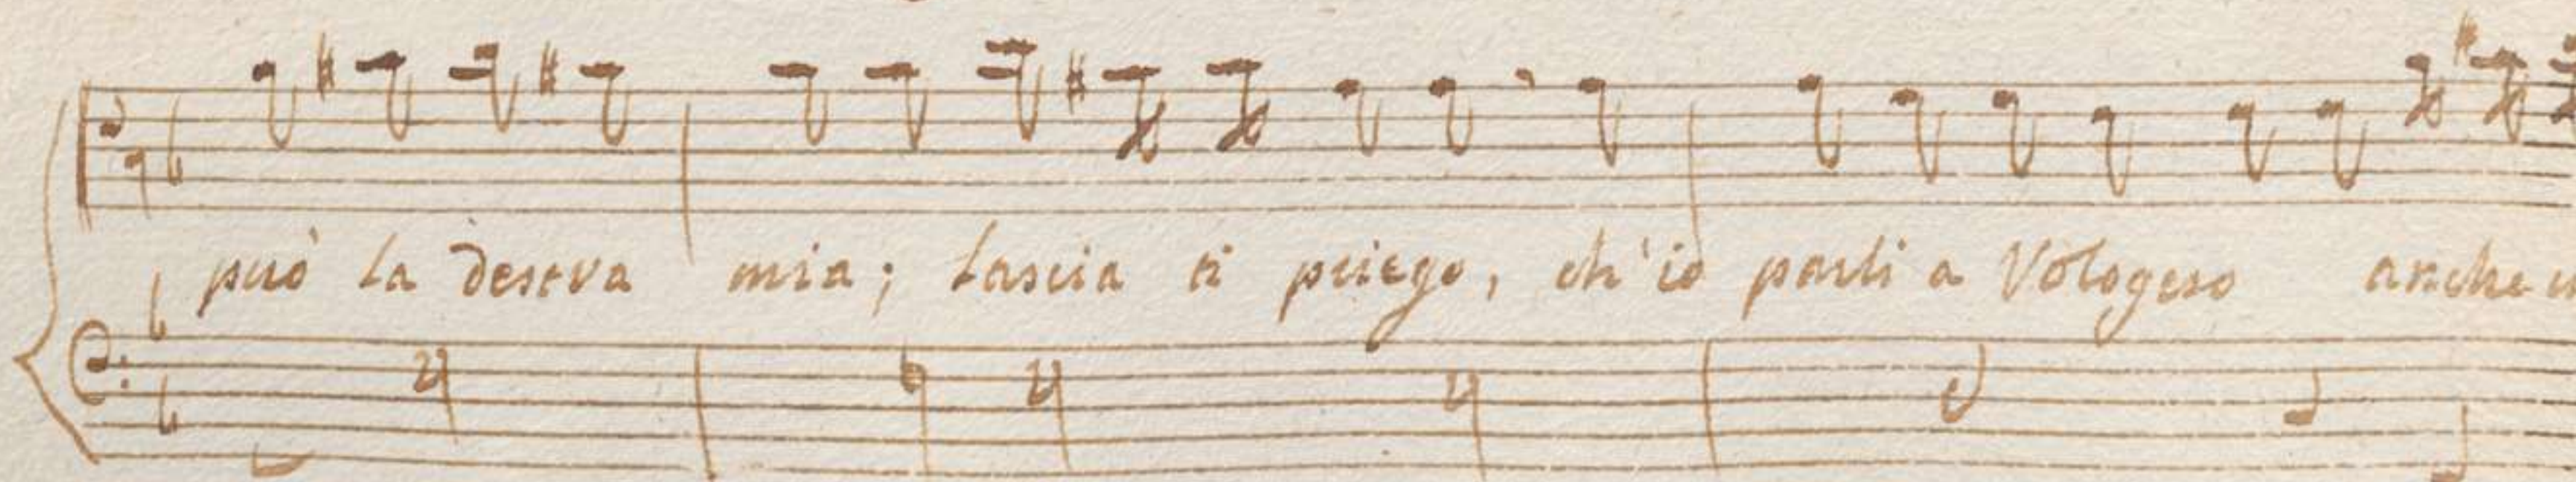 può la destra mia; lascia ti priego, ch'io parli a Vologeso anche